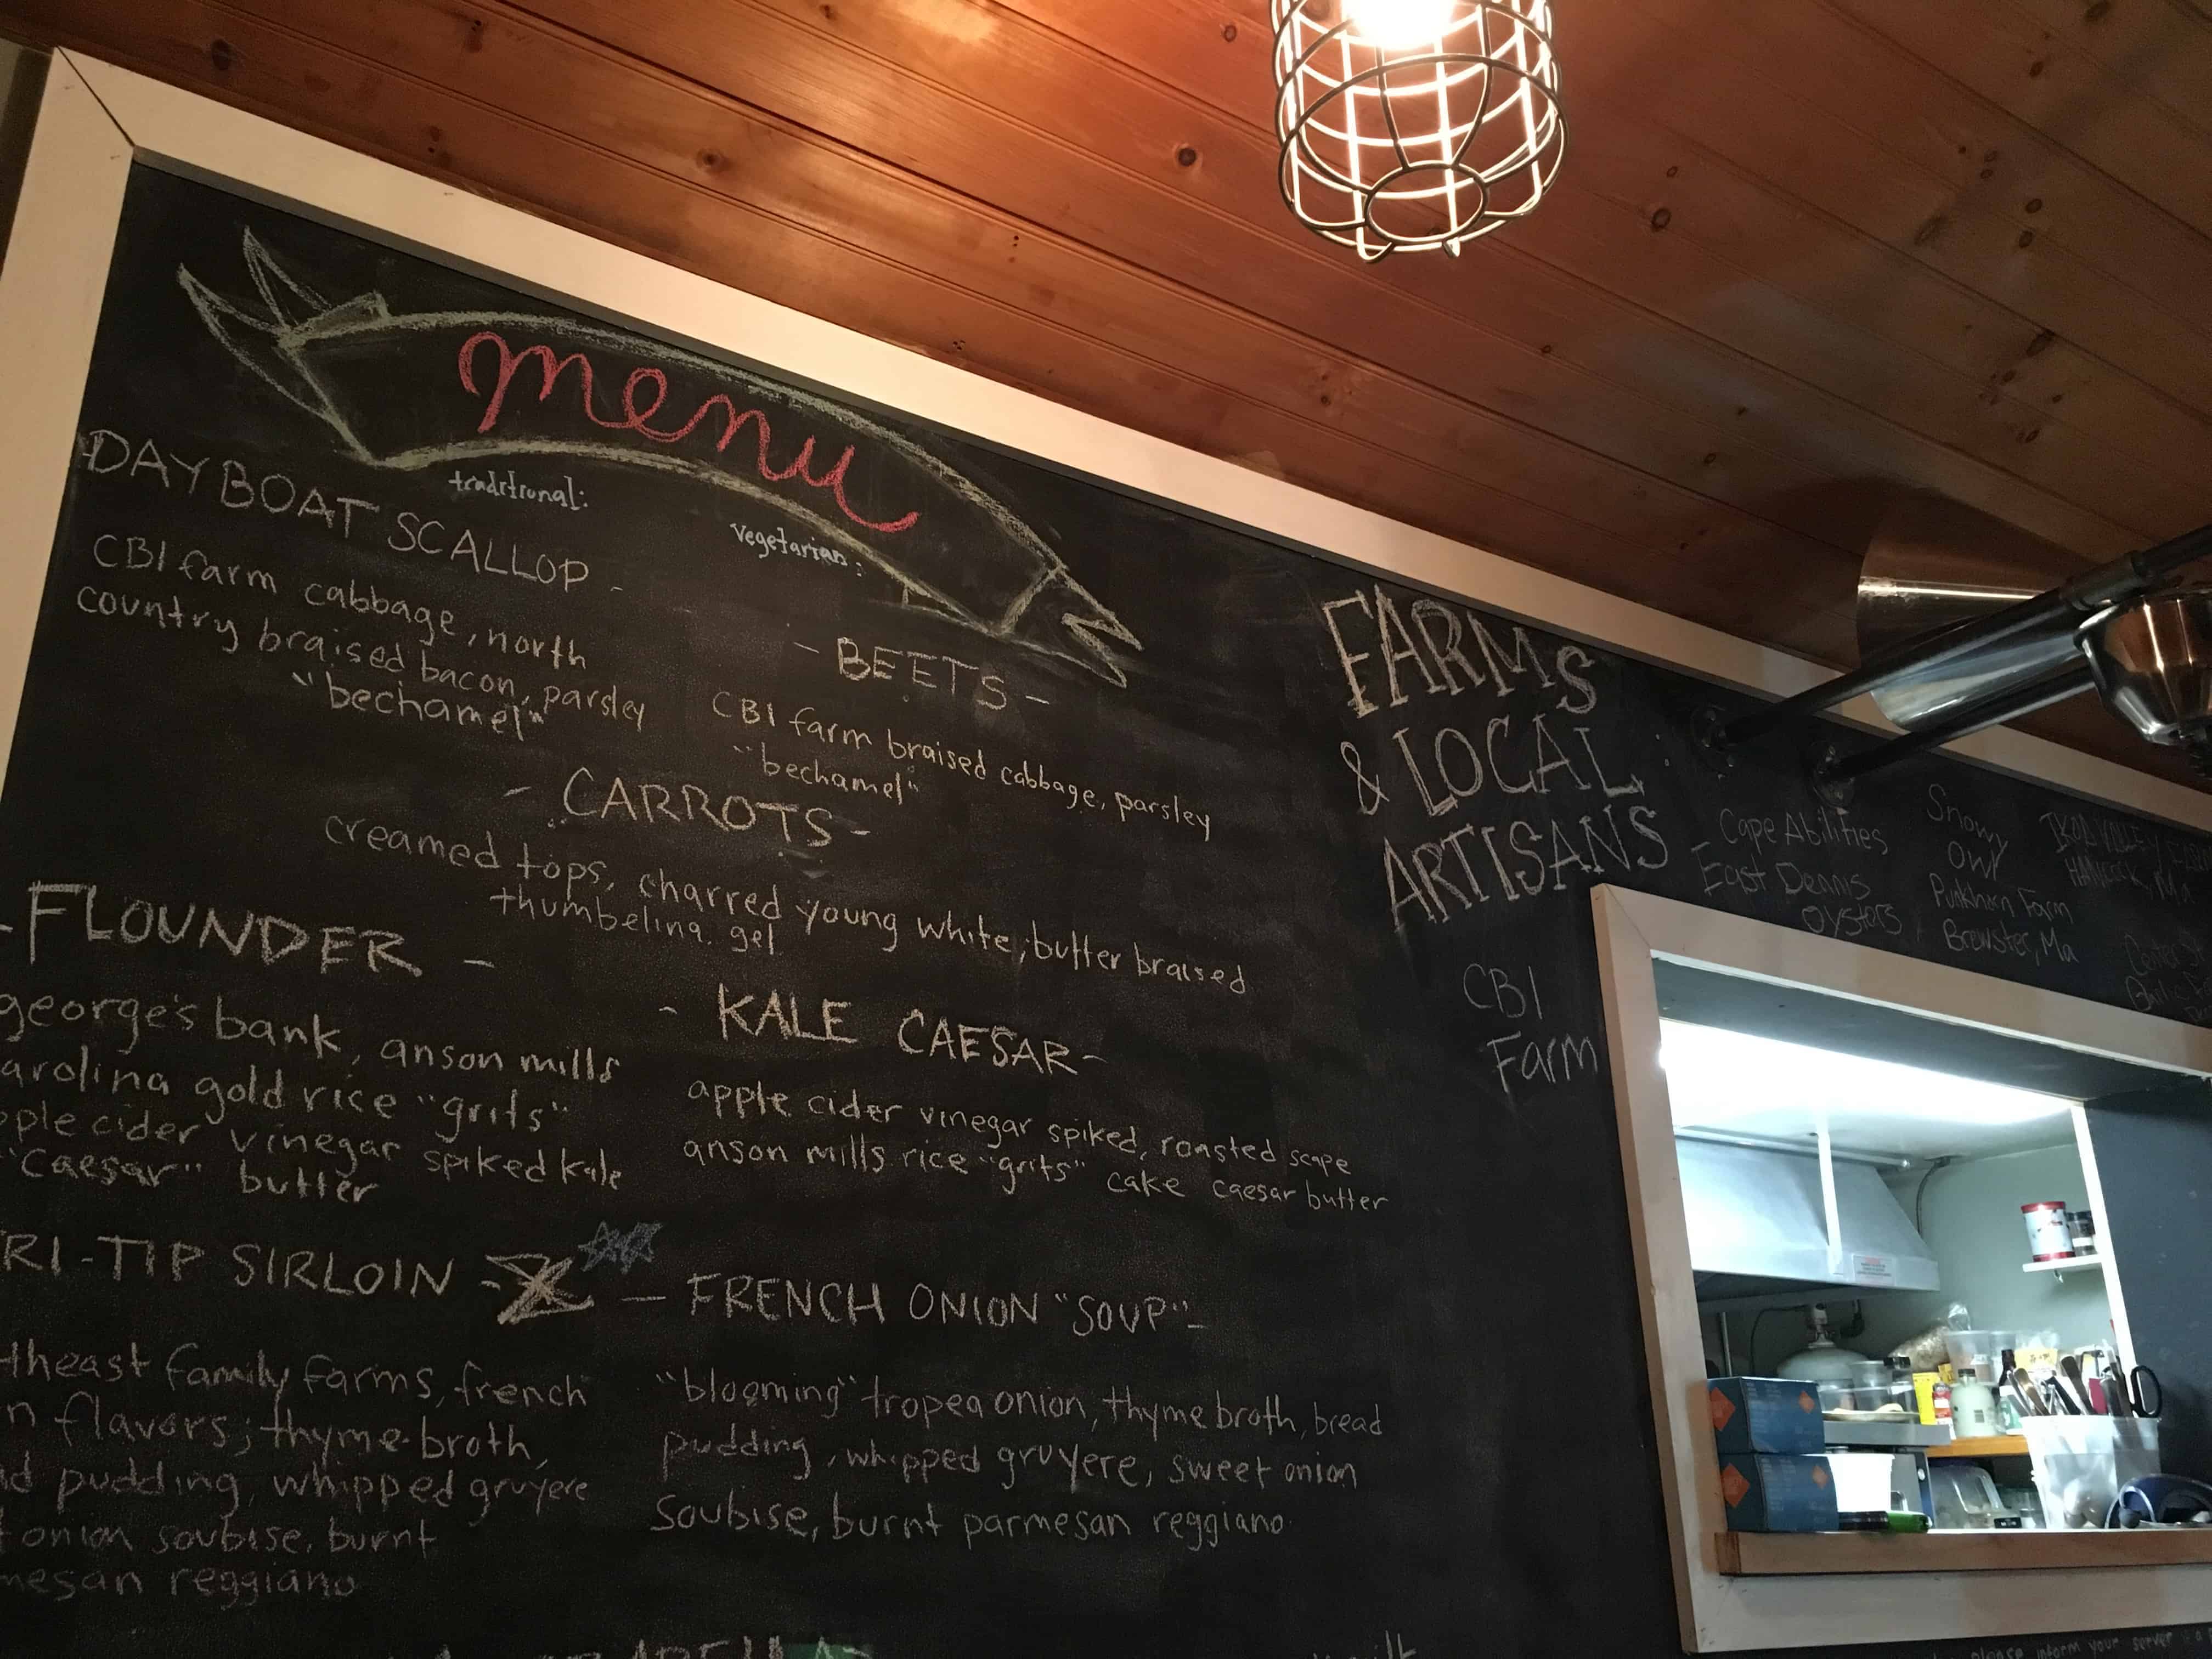 menu
traditional:
vegetarian:
DAYBOAT SCALLOP -
CBI farm cabbage, north
country braised bacon, parsley
"bechamel"
- BEETS -
CBI farm braised cabbage, parsley
"bechamel"
- CARROTS -
creamed tops, charred young white, butter braised
thumbelina. gel
- FLOUNDER -
george's bank, anson mills
arolina gold rice "grits"
ple cider vinegar spiked kale
"caesar" butter
- KALE CAESAR -
apple cider vinegar spiked, roasted scape
anson mills rice "grits" cake caesar butter
RI-TIP SIRLOIN -
theast family farms, french
n flavors; thyme broth,
d pudding, whipped gruyere
onion soubise, burnt
mesan reggiano
- FRENCH ONION "SOUP" -
"blooming" tropea onion, thyme broth, bread
pudding, whipped gruyere, sweet onion
soubise, burnt parmesan reggiano
FARMS
& LOCAL
ARTISANS
CBI
Farm
Cape Abilities
East Dennis
oysters
Snowy
Owl
Punkhorn Farm
Brewster, Ma
please inform your server